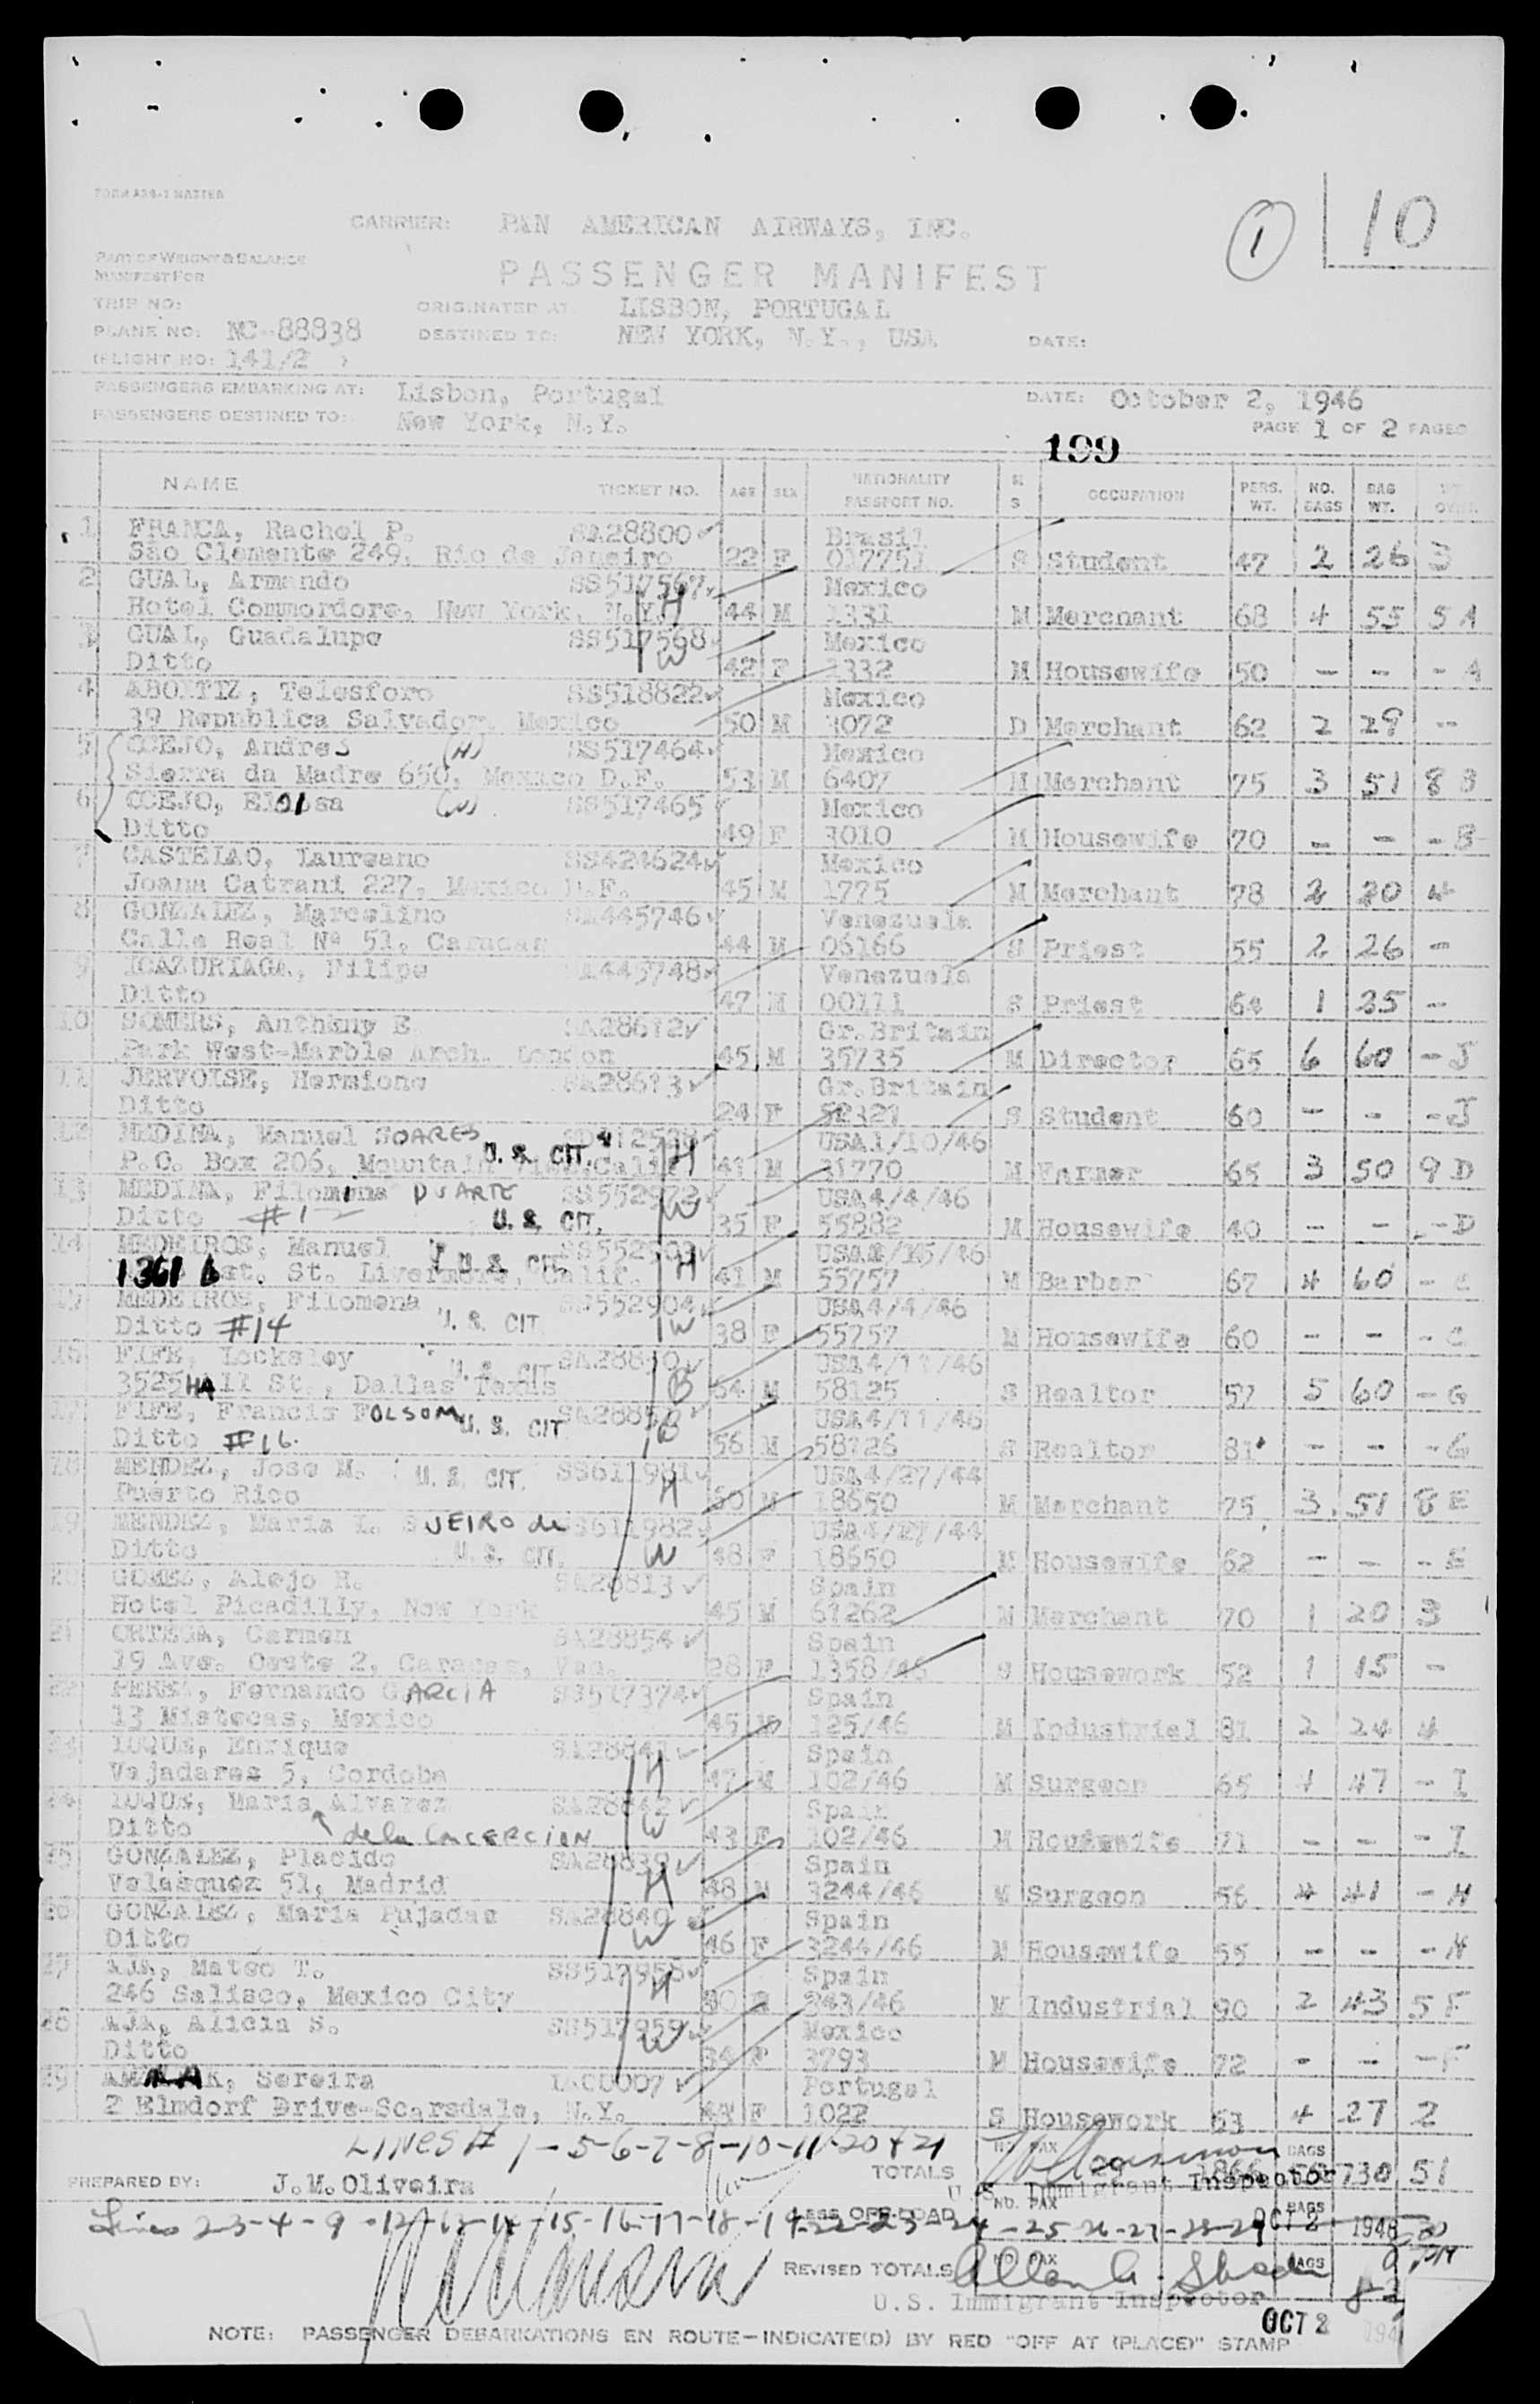 FORM A38-1 MASTER
CARRIER: PAN AMERICAN AIRWAYS, INC.
1 10
PART OF WEIGHT & BALANCE
MANIFEST FOR
PASSENGER MANIFEST
TRIP NO: ORIGINATED AT: LISBON, PORTUGAL
PLANE NO: NC-88838 DESTINED TO: NEW YORK, N.Y., USA DATE:
(FLIGHT NO: 141/2 )
PASSENGERS EMBARKING AT: Lisbon, Portugal DATE: October 2, 1946
PASSENGERS DESTINED TO: New York, N.Y. PAGE 1 OF 2 PAGES
199
NAME TICKET NO. AGE SEX NATIONALITY PASSPORT NO. M S OCCUPATION PERS. WT. NO. BAGS BAG WT.
1 FRANCA, Rachel P. SA28800 Brasil
Sao Clemente 249, Rio de Janeiro 22 F 017751 S Student 47 2 26 3
2 GUAL, Armando SS517567 Mexico
Hotel Commordore, New York, N.Y. H 44 M 1331 M Merchant 68 4 55 5 A
3 GUAL, Guadalupe SS517568 Mexico
Ditto W 42 F 1332 M Housewife 50 - - - A
4 ABOITIZ, Telesforo SS518822 Mexico
39 Republica Salvador, Mexico 50 M 3072 D Merchant 62 2 29 -
5 COEJO, Andres (H) SS517464 Mexico
Sierra da Madre 650, Mexico D.F. 53 M 6407 M Merchant 75 3 51 8 B
6 COEJO, Eloisa (W) SS517465 Mexico
Ditto 49 F 3010 M Housewife 70 - - - B
7 CASTELAO, Laureano SS424624 Mexico
Joana Catrani 227, Mexico D.F. 45 M 1775 M Merchant 78 2 20 4
8 GONZALEZ, Marcelino SA445746 Venezuela
Calle Real Nº 51, Caracas 44 M 06166 S Priest 55 2 26 -
9 ICAZURIAGA, Filipe SA445748 Venezuela
Ditto 47 M 00111 S Priest 64 1 35 -
10 SOMERS, Anthony E. SA28612 Gr.Britain
Park West-Marble Arch. London 45 M 35735 M Director 65 6 60 - J
11 JERVOISE, Hermione SA28613 Gr.Britain
Ditto 24 F 52327 S Student 60 - - - J
12 MEDINA, Manuel SOARES USA1/10/46
P.O. Box 206, Mountain Calif. U. S. CIT. H 41 M 31770 M Farmer 65 3 50 9 D
13 MEDINA, Filomina DUARTE SS552972 USA4/4/46
Ditto #12 U. S. CIT. W 35 F 55882 M Housewife 40 - - - D
14 MEDEIROS, Manuel J U. S. CIT. SS552903
1361 St. Livermore, Calif. H 41 M 55757 M Barber 67 4 60 - C
15 MEDEIROS, Filomena SS552904 USA4/4/46
Ditto #14 U. S. CIT. W 38 F 55757 M Housewife 60 - - - C
16 FIFE, Locksley U. S. CIT. SA28850 USA4/11/46
3525 HAll St., Dallas Texas B 54 M 58125 S Realtor 57 5 60 - G
17 FIFE, Francis FOLSOM U. S. CIT. USA4/11/46
Ditto #16. B 56 M 58126 S Realtor 81 - - - G
18 MENDEZ, Jose M. U. S. CIT. SS611981 USA4/27/44
Puerto Rico H 50 M 18650 M Merchant 75 3 51 8 E
19 MENDEZ, Maria L. SUEIRO de SS611982 USA4/27/44
Ditto U. S. CIT. W 48 F 18650 M Housewife 62 - - - E
20 GOMEZ, Alejo R. SA28813 Spain
Hotel Picadilly, New York 45 M 61262 M Merchant 70 1 20 3
21 ORTEGA, Carmen SA28854 Spain
19 Ave. Oeste 2, Caracas, Ven. 28 F 1358/46 S Housework 52 1 15 -
22 PEREZ, Fernando GARCIA SS517374 Spain
13 Mistecas, Mexico 45 M 125/46 M Industrial 81 2 24 4
23 LUQUE, Enrique SA28841 Spain
Vejadares 5, Cordoba H 47 M 102/46 M Surgeon 65 4 47 - I
24 LUQUE, Maria Alvarez SA28842 Spain
Ditto de la CONCEPCION W 43 F 102/46 M Housewife 71 - - - I
25 GONZALEZ, Placido SA28839 Spain
Velasquez 51, Madrid H 48 M 3244/46 M Surgeon 56 4 41 - H
26 GONZALEZ, Maria Pujadas SA28840 Spain
Ditto W 46 F 3244/46 M Housewife 55 - - - H
27 AJA, Mateo T. SS517958 Spain
246 Salisco, Mexico City H 243/46 M Industrial 90 2 43 5 F
28 AJA, Alicia S. SS517959 Mexico
Ditto W 34 F 3793 M Housewife 72 - - - F
29 Sereira Portugal
2 Elmdorf Drive-Scarsdale, N.Y. F 1022 S Housework 63 4 27 2
LINES # 1-5-6-7-8-10-11-20+21 NO. PAX BAGS
TOTALS 29 1866 730 51
U.S. Immigrant Inspector
PREPARED BY: J.M.Oliveira
NO. PAX BAGS
LESS OFF-LOAD
Lines 2-3-4-9-12-13-14-15-16-17-18-19-22-23-24-25-26-27-28-29 OCT 2 1946
REVISED TOTALS NO. PAX BAGS
U.S. Immigrant Inspector
OCT 2 194
NOTE: PASSENGER DEBARKATIONS EN ROUTE-INDICATE(D) BY RED "OFF AT (PLACE)" STAMP